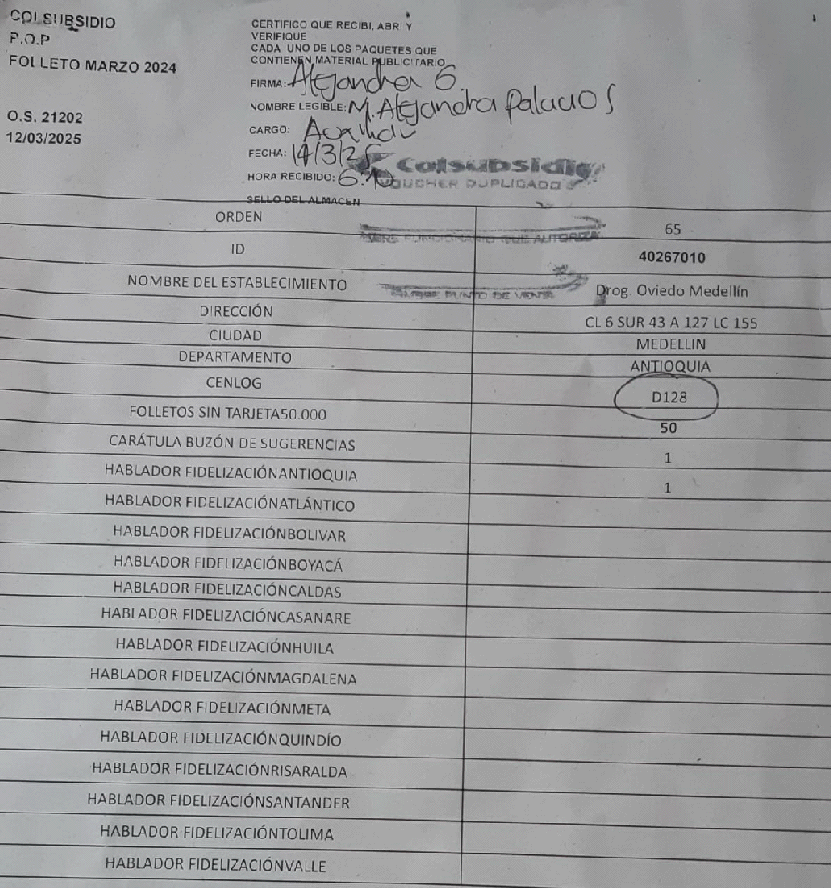 COLSUBSIDIO
P.O.P
FOLLETO MARZO 2024
O.S. 21202
12/03/2025
CERTIFICO QUE RECIBI, ABRI Y
VERIFIQUE
CADA UNO DE LOS PAQUETES QUE
CONTIENEN MATERIAL PUBLICITARIO
FIRMA: Alejandra G.
NOMBRE LEGIBLE: M. Alejandra Palacios
CARGO: Auxiliar
FECHA: 14/3/25
HORA RECIBIDO:
Colsubsidio
VOUCHER DUPLICADO
SELLO DEL ALMACEN
ORDEN 65
ID 40267010
NOMBRE DEL ESTABLECIMIENTO Drog. Oviedo Medellín
DIRECCIÓN CL 6 SUR 43 A 127 LC 155
CIUDAD MEDELLIN
DEPARTAMENTO ANTIOQUIA
CENLOG D128
FOLLETOS SIN TARJETA50.000 50
CARÁTULA BUZÓN DE SUGERENCIAS 1
HABLADOR FIDELIZACIÓNANTIOQUIA 1
HABLADOR FIDELIZACIÓNATLÁNTICO
HABLADOR FIDELIZACIÓNBOLIVAR
HABLADOR FIDELIZACIÓNBOYACÁ
HABLADOR FIDELIZACIÓNCALDAS
HABLADOR FIDELIZACIÓNCASANARE
HABLADOR FIDELIZACIÓNHUILA
HABLADOR FIDELIZACIÓNMAGDALENA
HABLADOR FIDELIZACIÓNMETA
HABLADOR FIDELIZACIÓNQUINDÍO
HABLADOR FIDELIZACIÓNRISARALDA
HABLADOR FIDELIZACIÓNSANTANDER
HABLADOR FIDELIZACIÓNTOLIMA
HABLADOR FIDELIZACIÓNVALLE